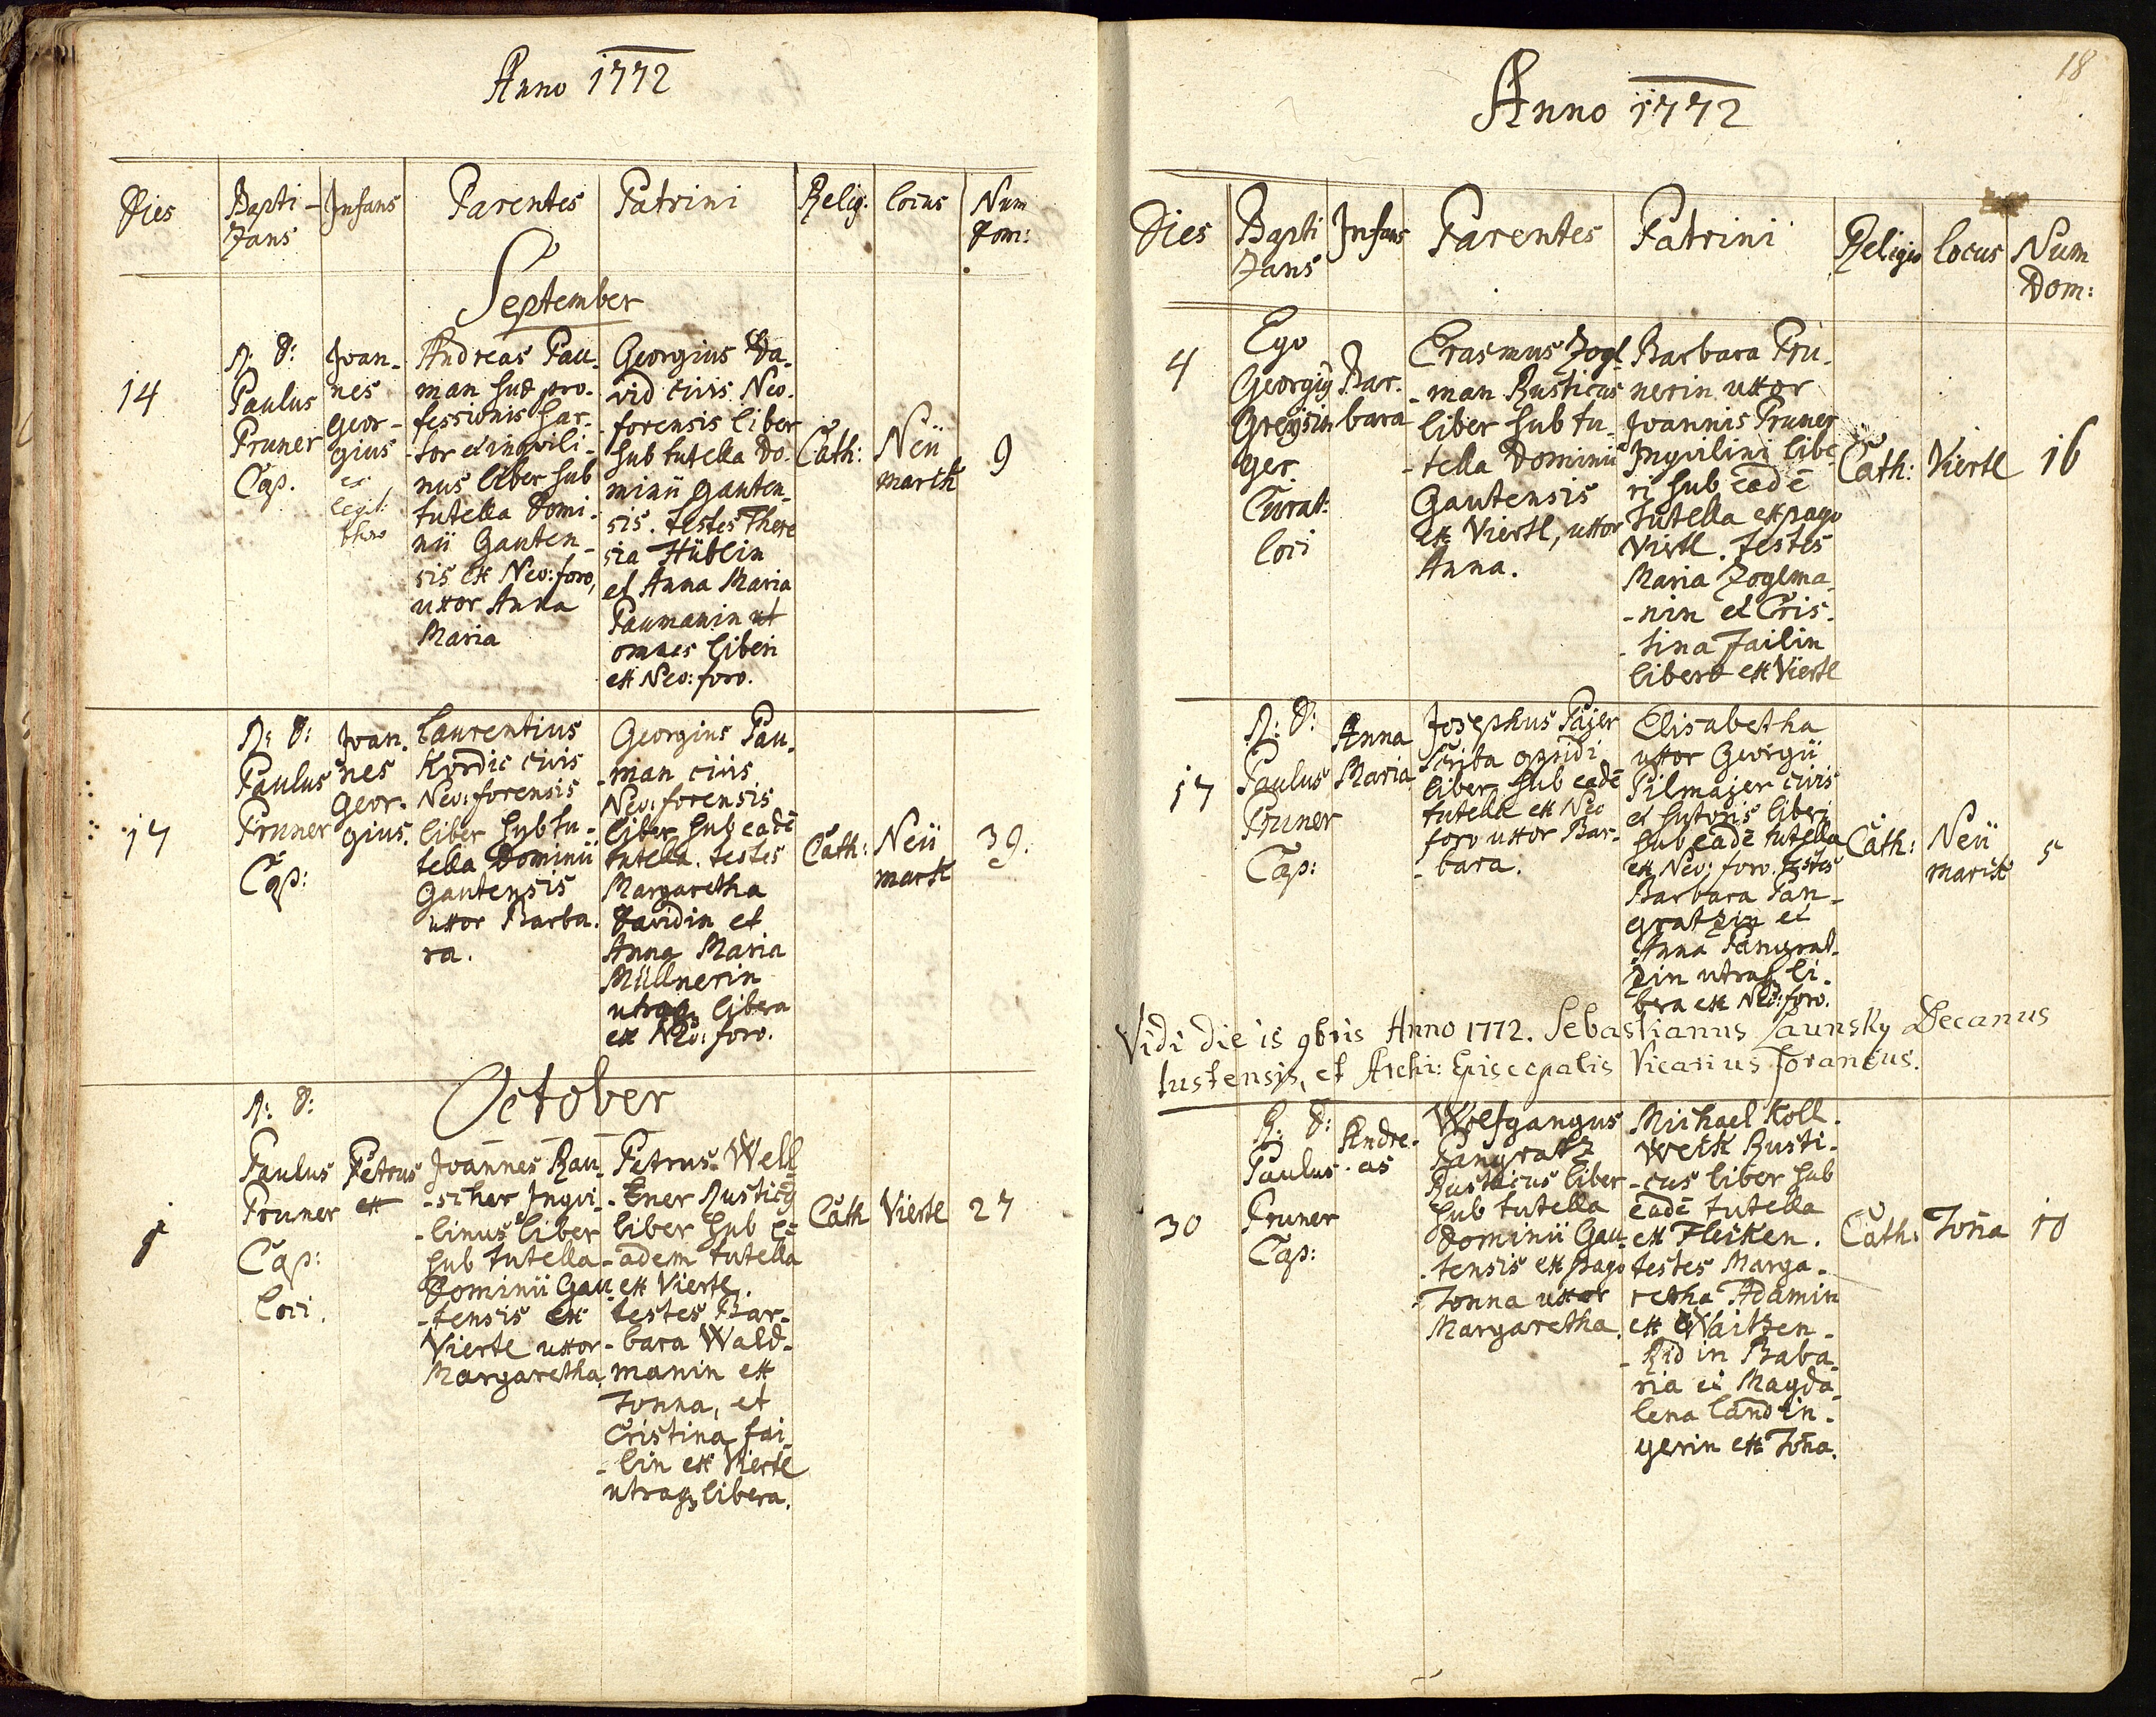 Anno 1772
Dies
Bapti-
zans
Infans
Parentes
Patrini
Relig.
locus
Num
Dom:
September
14
R: D:
Paulus
Pruner
Cap.
Joan-
nes
geor-
gius
ex
legit:
thoro
Andreas Pau-
man suæ pro-
fessionis sar-
tor et inqvili-
nus liber sub
tutella Domi-
nii Gauten-
sis ex Neo: foro,
uxor Anna
Maria
Georgius Da-
vid civis Neo-
forensis liber
sub tutella Do-
minii gauten-
sis. testes There
sia Hüblin
et Anna Maria
Paumanin ut
omnes liberi
ex Neo: foro.
Cath:
Neü
markt
9
17
R: D:
Paulus
Pruner
Cap:
Joan-
nes
Geor-
gius.
Laurentius
Kordic civis
Neo: forensis
liber sub tu-
tella Dominii
Gautensis
uxor Barba-
ra.
Georgius Pau-
man civis
Neo: forensis
liber sub eadē
tutella. testes
Margaretha
Davidin et
Anna Maria
Müllnerin
utraq3 libera
ex Neo: foro.
Cath:
Neü
markt
39.
October
1
R: D:
Paulus
Pruner
Cap:
loci.
Petrus
ex
Joannes Rau-
-scher Inqvi-
-linus liber
sub tutella
Dominii Gau-
-tensis ex
Viertl uxor
Margaretha
Petrus Well-
-ner Rusticq
liber sub e-
-adem tutella
ex Viertl.
testes Bar-
-bara Wald-
manin ex
Tonna, et
Cristina fai-
-lin ex Viertl
utraq3 libera.
Cath
Viertl
27
18
Anno 1772
Dies
Bapti
zans
Infans
Parentes
Patrini
Religio
locus
Num
Dom:
4
Ego
Georgiq
Greysin
ger
Curat:
loci
Bar-
bara
Erasmus Zogl-
-man Rusticus
liber sub tu-
-tella Dominii
Gautensis
ex Viertl, uxor
Anna.
Barbara Pru-
nerin uxor
Joannis Pruner
Inqvilini libe-
ri sub eadē
tutella ex pago
Viertl. testes
Maria Zoglma-
-nin et Cris-
-tina Failin
liberæ ex Viertl
Cath:
Viertl
16
17
R: D:
Paulus
Pruner
Cap:
Anna
Maria
Josephus Pajer
scriba opidi
liber sub eadē
tutella ex Neo
foro uxor Bar-
-bara.
Elisabetha
uxor Georgii
Pilmajer civis
et sutoris liberi
sub eadē tutella
ex Neo: foro. testes
Barbara Pan-
gratzin et
Anna Pangrat-
zin utraq3 li-
bera ex Neo: foro.
Cath:
Neü
markt
5
Vidi die 15 9bris Anno 1772. Sebastianus Zaunsky Decanus
tustensis, et Archi: Episcopalis Vicarius foraneus.
30
R: D:
Paulus
Pruner
Cap:
Andre-
as
Wolfgangus
Pangratz
Rusticus liber
sub tutella
Dominii Gau-
-tensis ex pago
Tonna uxor
Margaretha.
Michael Koll-
weck Rusti-
-cus liber sub
eadē tutella
ex Flecken.
testes Marga-
retha Adamin
ex Waitzen-
-Rid in Baba-
ria et Magda-
lena landin-
gerin ex Toña.
Cath:
Toña
10